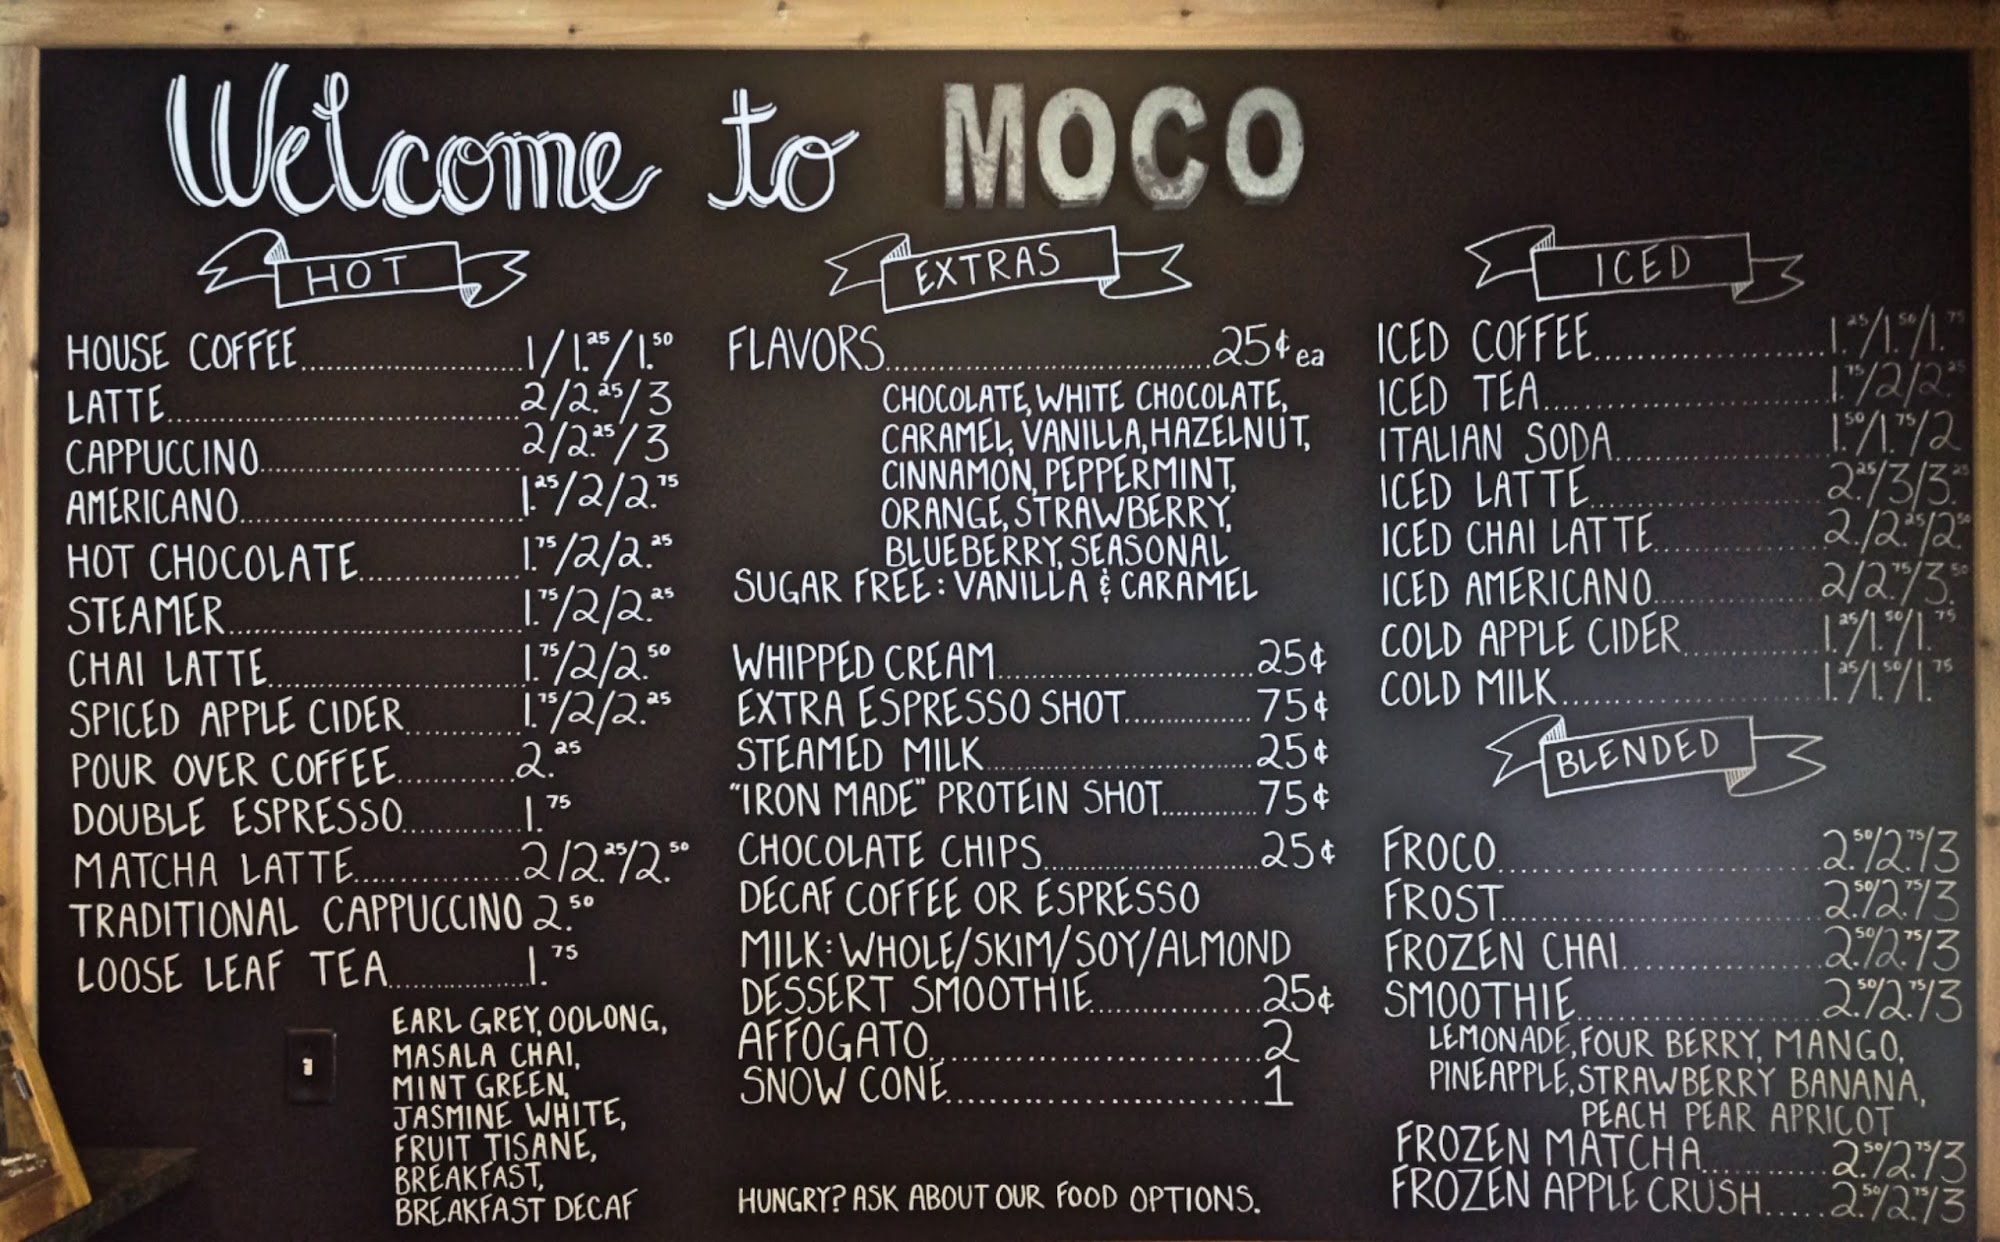 Welcome to MOCO
HOT
HOUSE COFFEE 1/1.25/1.50
LATTE 2/2.25/3
CAPPUCCINO 2/2.25/3
AMERICANO 1.25/2/2.75
HOT CHOCOLATE 1.75/2/2.25
STEAMER 1.75/2/2.25
CHAI LATTE 1.75/2/2.50
SPICED APPLE CIDER 1.75/2/2.25
POUR OVER COFFEE 2.25
DOUBLE ESPRESSO 1.75
MATCHA LATTE 2/2.25/2.50
TRADITIONAL CAPPUCCINO 2.50
LOOSE LEAF TEA 1.75
EARL GREY, OOLONG,
MASALA CHAI,
MINT GREEN,
JASMINE WHITE,
FRUIT TISANE,
BREAKFAST,
BREAKFAST DECAF
EXTRAS
FLAVORS 25¢ ea
CHOCOLATE, WHITE CHOCOLATE,
CARAMEL, VANILLA, HAZELNUT,
CINNAMON, PEPPERMINT,
ORANGE, STRAWBERRY,
BLUEBERRY, SEASONAL
SUGAR FREE: VANILLA & CARAMEL
WHIPPED CREAM 25¢
EXTRA ESPRESSO SHOT 75¢
STEAMED MILK 25¢
"IRON MADE" PROTEIN SHOT 75¢
CHOCOLATE CHIPS 25¢
DECAF COFFEE OR ESPRESSO
MILK: WHOLE/SKIM/SOY/ALMOND
DESSERT SMOOTHIE 25¢
AFFOGATO 2
SNOW CONE 1
HUNGRY? ASK ABOUT OUR FOOD OPTIONS.
ICED
ICED COFFEE 1.25/1.50/1.75
ICED TEA 1.75/2/2.25
ITALIAN SODA 1.50/1.75/2
ICED LATTE 2.25/3/3.25
ICED CHAI LATTE 2./2.25/2.50
ICED AMERICANO 2/2.75/3.50
COLD APPLE CIDER 1.25/1.50/1.75
COLD MILK 1.25/1.50/1.75
BLENDED
FROCO 2.50/2.75/3
FROST 2.50/2.75/3
FROZEN CHAI 2.50/2.75/3
SMOOTHIE 2.50/2.75/3
LEMONADE, FOUR BERRY, MANGO,
PINEAPPLE, STRAWBERRY BANANA,
PEACH PEAR APRICOT
FROZEN MATCHA 2.50/2.75/3
FROZEN APPLE CRUSH 2.50/2.75/3